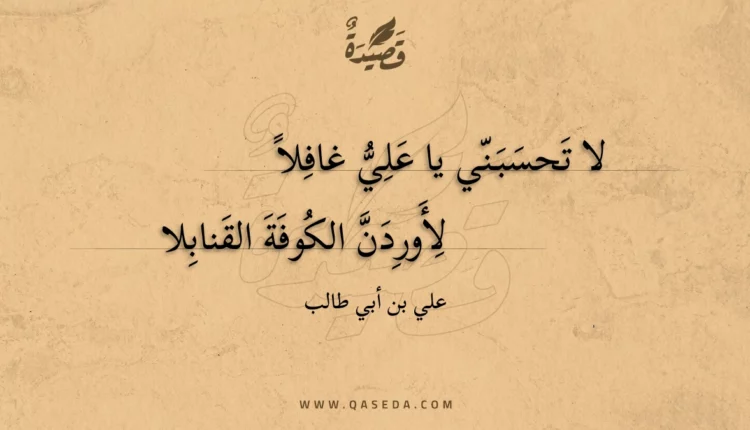 قَصِيْدَةٌ
لا تَحسَبَنّي يا عَلِيُّ غافِلاً
لِأَورِدَنَّ الكُوفَةَ القَنابِلا
علي بن أبي طالب
WWW.QASEDA.COM